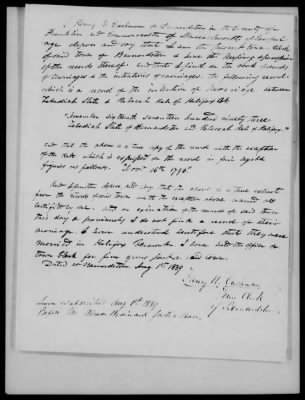 I Henry W. Cushman of Bernardston in the County of
Franklin and Commonwealth of Massachusetts, of lawful
age depose and say that I am the present town Clerk
of said town of Bernardston & have the keeping & possession
of the records thereof and that I find on the book records
of marriages & the intentions of marriages, the following record
which is a record of the intention of marriage between
Zebadiah Slate & Rebecah Pak of Halifax
"November sixteenth seventeen hundred ninety three
Zebadiah Slate of Bernardston and Rebecah Pak of Halifax."
and that the above is a true copy of the record with the exception
of the date which is expressed on the record in figures
figures as follows. "Nov. 16th 179
And I further depose and say that the above is a true extract
from the records of said town with the exception above named
and on examination of the records of said town
this day & previously I do not find a record of their
marriage. I have understood heretofore that they were
married in Halifax Vermont. I have held the office of
town Clerk for five years past and over.
Dated at Bernardston Aug 1st 1839
Henry W. Cushman
Town Clerk
of Bernardston
Sworn & subscribed Aug 1st 1839
Before me Justice Peace